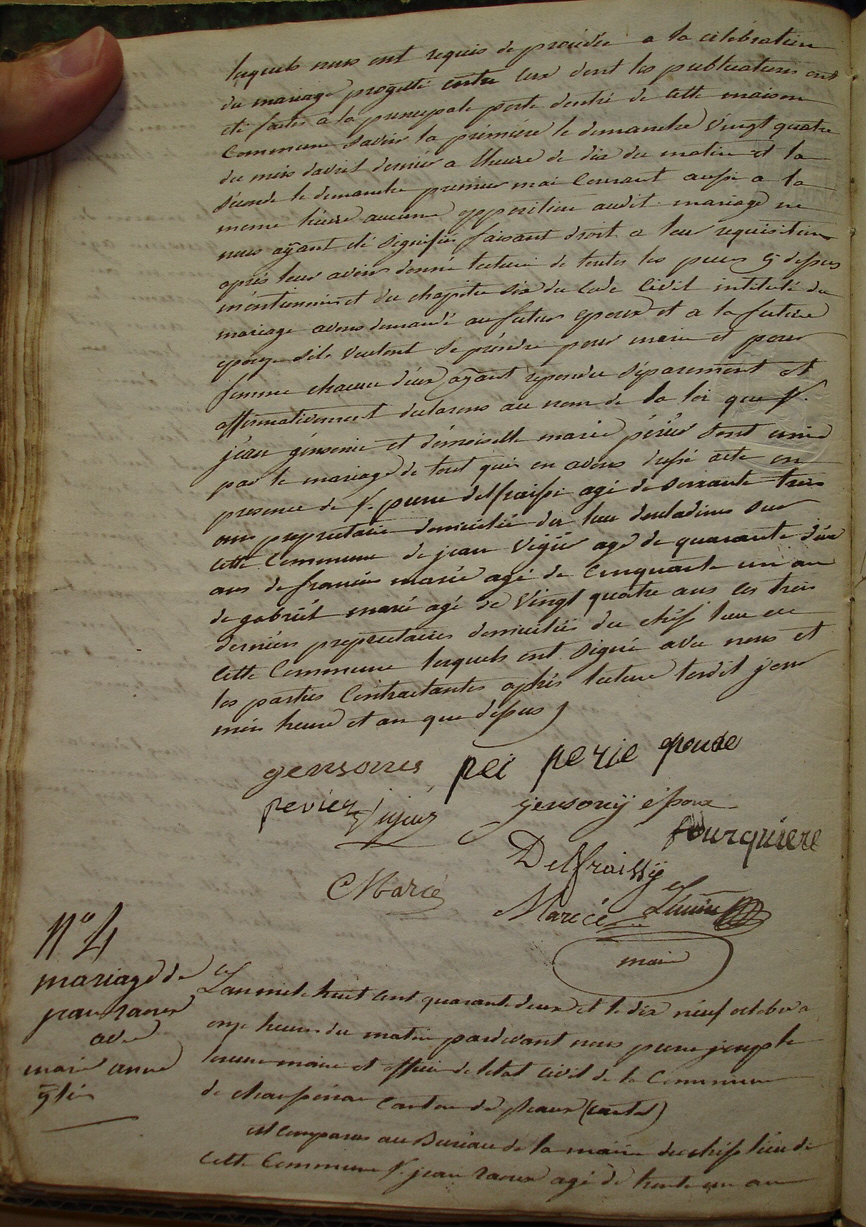 lequels nous ont requis de procéder a la célébration
du mariage projetté entre eux dont les publications ont
été faites a la principale porte dentré de cette maison
Commune Savoir la première le demanche Vingt quatre
du mois davril dernier a lheure de dix du matin et la
Séconde le demanche premier mai Courant aussi a la
meme heure aucune opposition audit mariage ne
nous ayant été Signifié faisant droit a leur requisition
après leur avoir donné lecture de toutes les pieces cy dessus
mentionnés et du chapitre six du Code Civil intitulé du
mariage avons demandé au futur epoux et a la future
epouse Sils veulent Se prendre pour mari et pour
femme chacun deux ayant repondu Séparement et
affirmativement declarons au nom de la loi que Sr.
jean gensonie et demoiselle marie périé Sont unis
par le mariage de tout quoi en avons dressé acte en
presence de Sr. pierre delfraissi agé de Soixante trois
ans proprietaire domicilié du lieu
cette Commune de jean Vigié agé de quarante deux
ans de francois marcé agé de Cinquante un an
de gabriel marcé agé de Vingt quatre ans les trois
derniers proprietaires domiciliés du chef lieu de
Cette Commune lesquels ont Signé avec nous et
les parties Contractantes après lecture lesdit jour
mois heure et an que dessus
gensonis pei perie epouse
perier Vigier gensonÿ époux
fourquiere
Delfraissÿ
Marcé
Marcé
maire
n°4
mariage de
jean raoux
avec
marie anne
Lan mil huit cent quarante deux et le dix neuf octobre a
onze heures du matin pardevant nous pierre joseph
maire et officier de létat civil de la Commune
de Canton de pleaux (cantal)
est comparus au Bureau de la mairie du chef lieu de
cette Commune Sr. jean raoux agé de trente un an